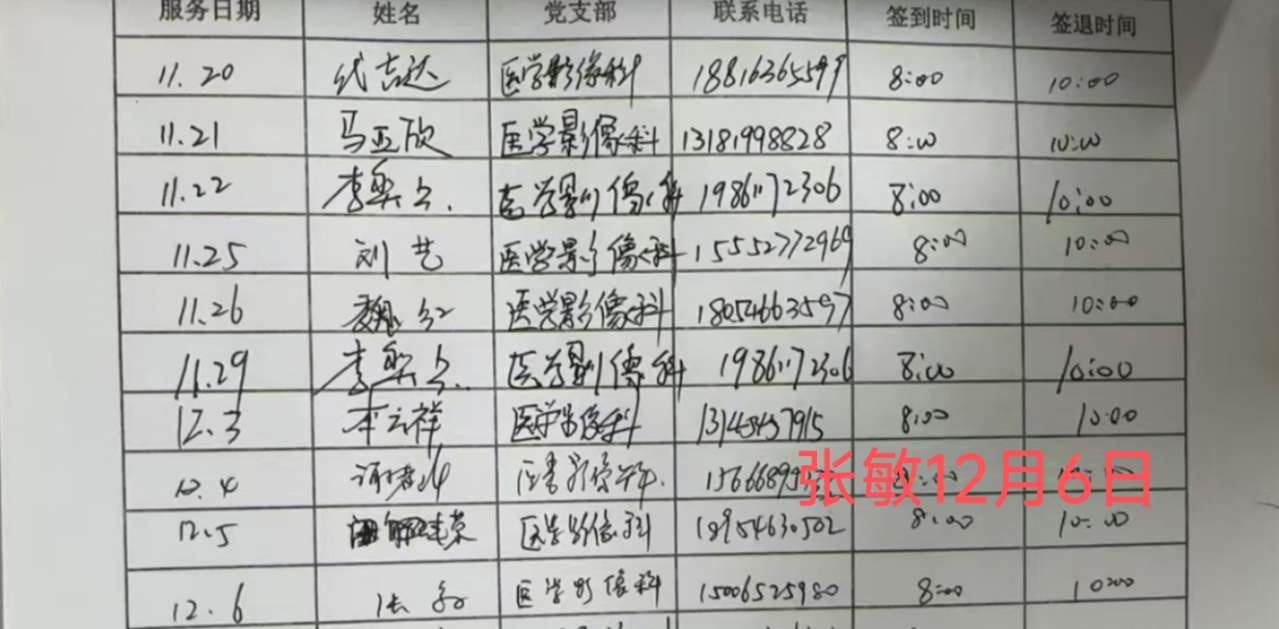 服务日期 姓名 党支部 联系电话 签到时间 签退时间
11.20 代志达 医学影像科 18816365599 8:00 10:00
11.21 马亚欣 医学影像科 13181998828 8:00 10:00
11.22 李 医学影像科 19861172306 8:00 10:00
11.25 刘艺 医学影像科 15552772969 8:00 10:00
11.26 魏 医学影像科 18054663597 8:00 10:00
11.29 李 医学影像科 19861172306 8:00 10:00
12.3 李云祥 医学影像科 8:00 10:00
12.4 医学影像科
张敏12月6日
12.5 医学影像科 18954630502 8:00 10:00
12.6 张敏 医学影像科 15006525980 8:00 10:00